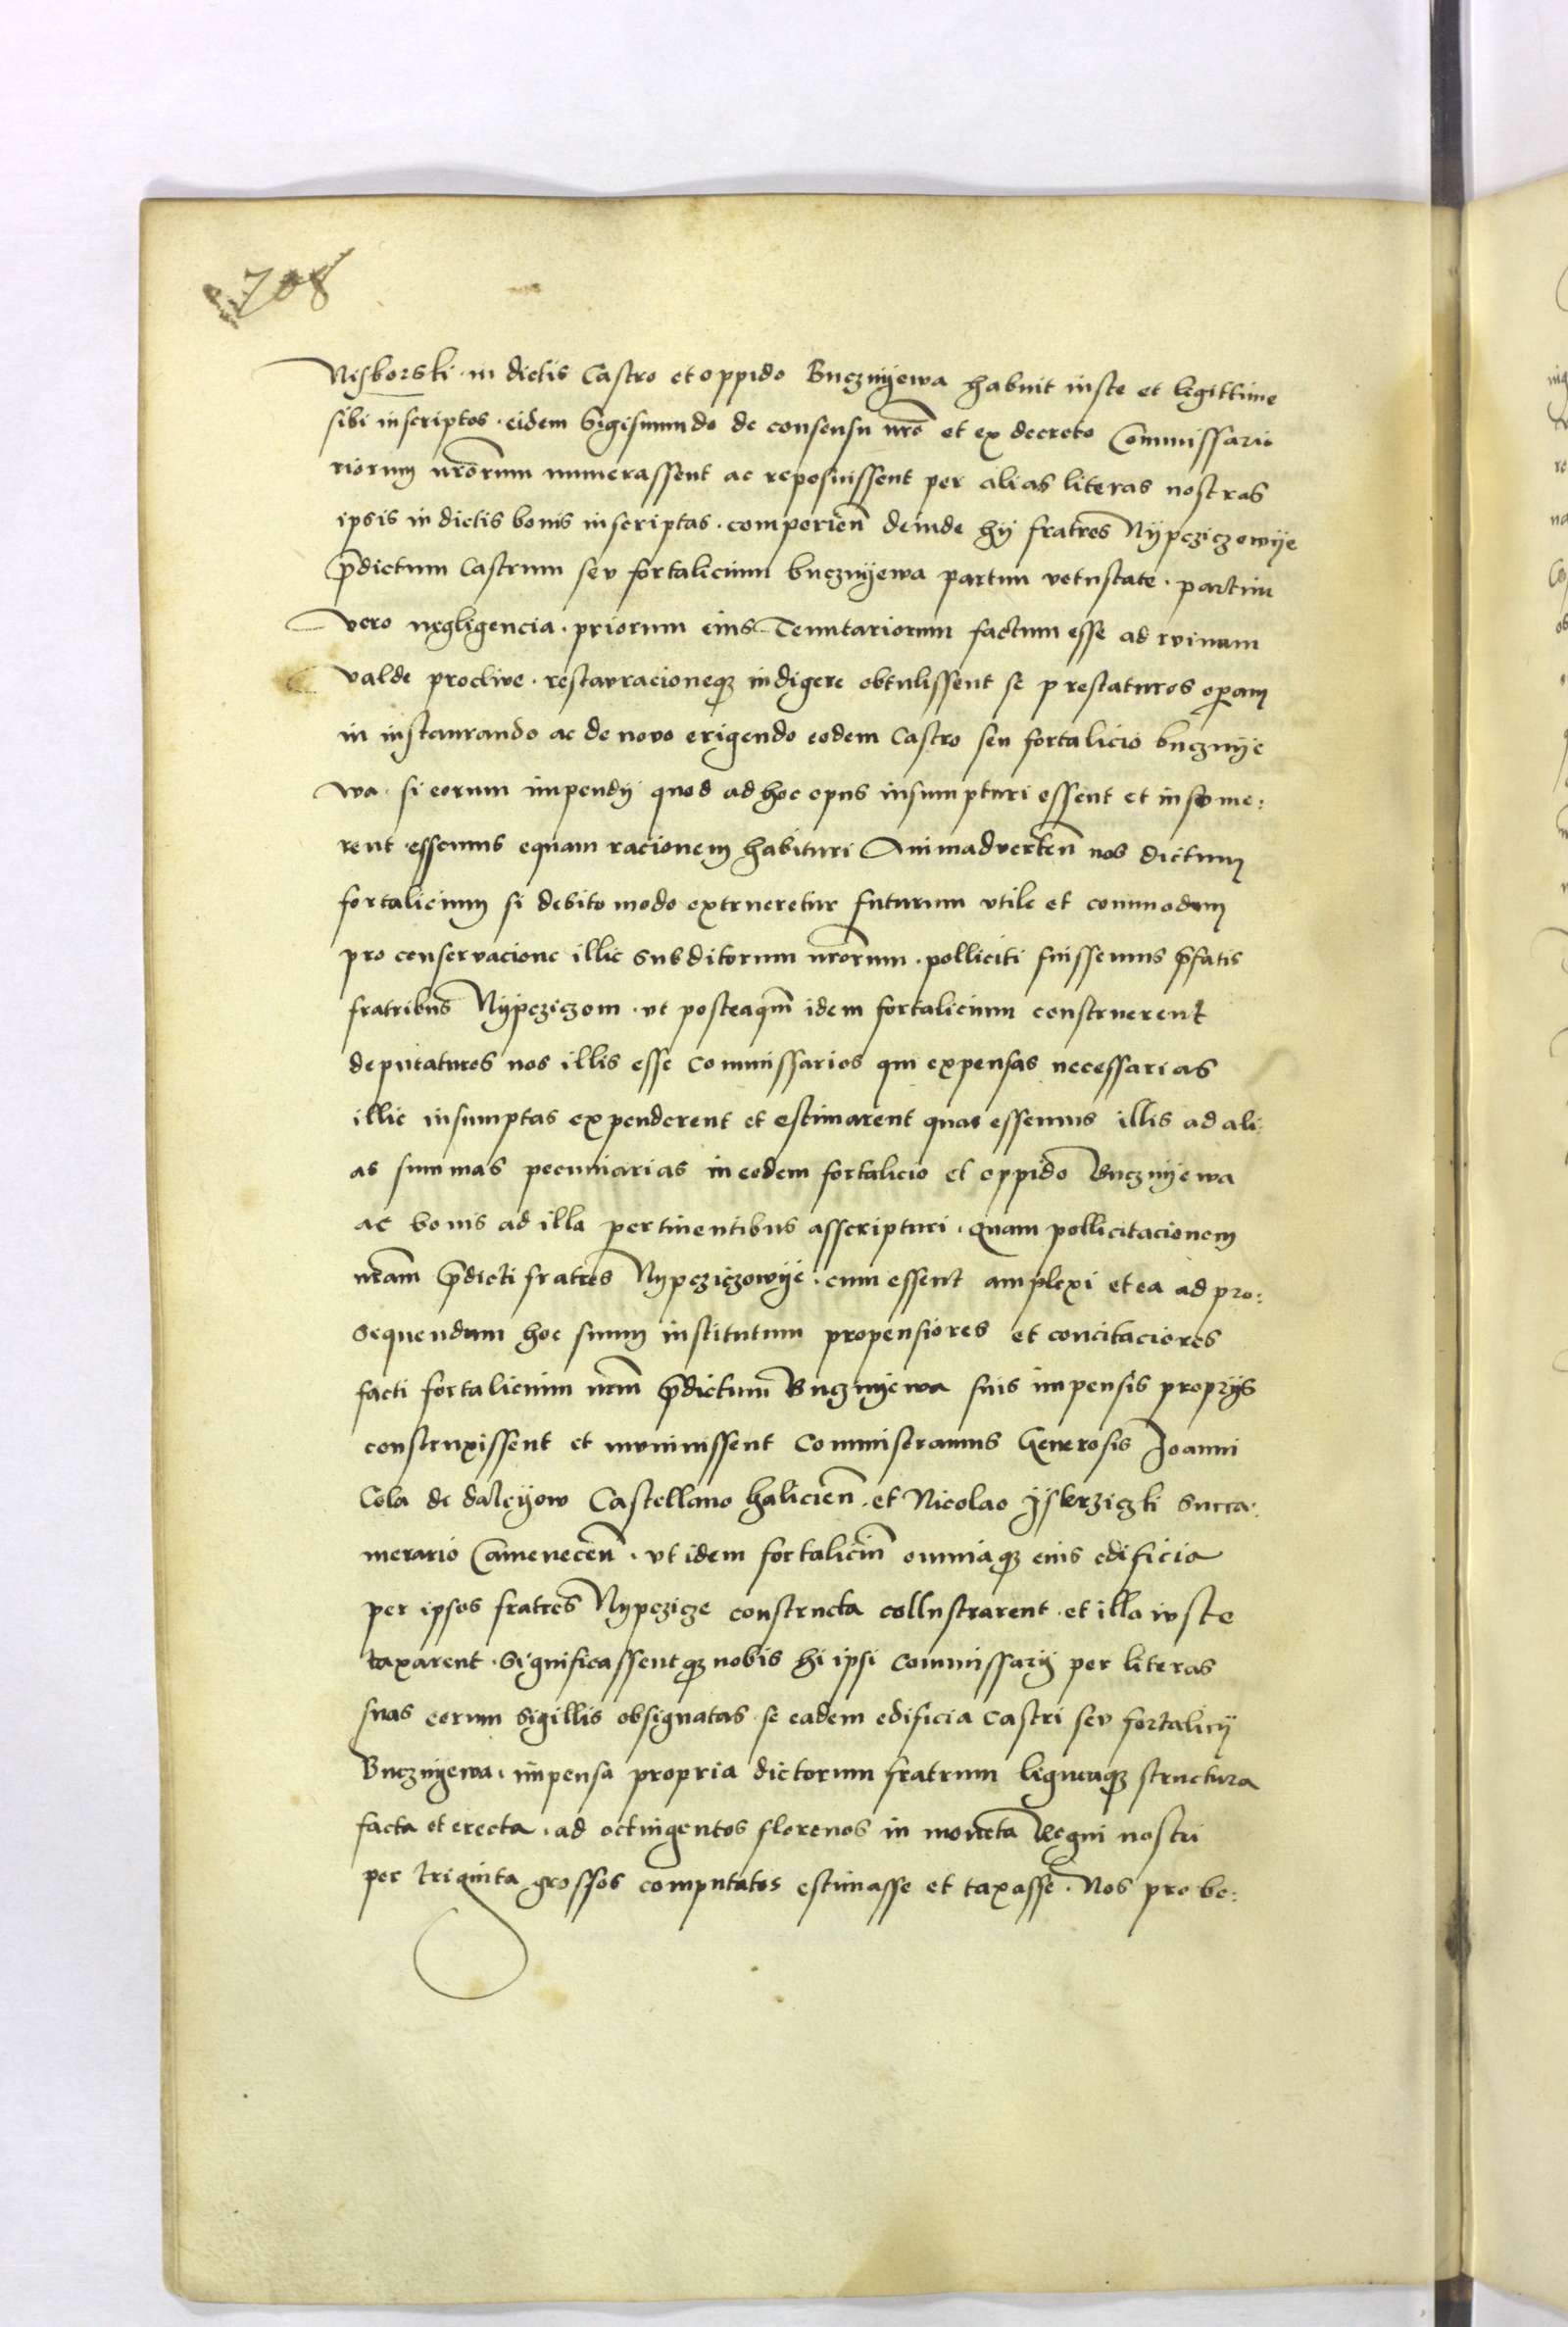 708
Nijborski in dictis Castro et oppido Bucznÿewa habuit iuste et legittime
sibi inscriptos. eidem Sigismundo de consensu nro et ex decreto Commissario
riorum nrorum numerassent ac reposuissent per alias literas nostras
ipsis in dictis bonis inscriptas. comperien deinde hÿ fratres Nÿpcziczowÿe
pdictum Castrum sev fortalicium bucznÿewa partim vetustate. partim
vero negligencia. priorum eius Tenutariorum factum esse ad rvinam
valde proclive. restavracioneqz indigere obtulissent se prestaturos opam
in instaurando ac de novo erigendo eodem Castro seu fortalicio bucznÿe
wa. si eorum impendÿ quod ad hoc opus insumpturi essent et insume:
rent essemus equam racionem habituri Animadverten nos dictum
fortalicium si debito modo extrueretur futurum vtile et commodum
pro conservacione illic subditorum nrorum. polliciti fuissemus pfatis
fratribus Nÿpcziczom. vt posteaqm idem fortalicium construerent
deputaturos nos illis esse commissarios qui expensas necessarias
illic insumptas expenderent et estimarent quas essemus illis ad ali:
as summas pecuniarias in eodem fortalicio et oppido Buczniÿewa
ac bonis ad illa pertinentibus asscripturi. quam pollicitacionem
nram pdicti fratres Nÿpcziczowÿe. cum essent amplexi et ea ad pro:
sequendum hoc suum institutum propensiores et concitaciores
facti fortalicium nrm pdictum Bucznÿewa suis impensis proprÿs
construxissent et mvnivissent Commiseramus Generosis Joanni
Cola de daleÿow Castellano halicien. et Nicolao Jskrziczki Succa:
merario Camenecen. vt idem fortalicim omniaqz eius edificia
per ipsos fratres Nÿpczicze constructa collustrarent. et illa ivste
taxarent. Significassentqz nobis hi ipsi commissarÿ per literas
suas eorum sigillis obsignatas se eadem edificia castri sev fortalicÿ
Bucznÿewa. impensa propria dictorum fratrum ligneaqz structura
facta et erecta. ad octingentos florenos in moneta Regni nostri
per triginta grossos computatos estimasse et taxasse. Nos pro be: